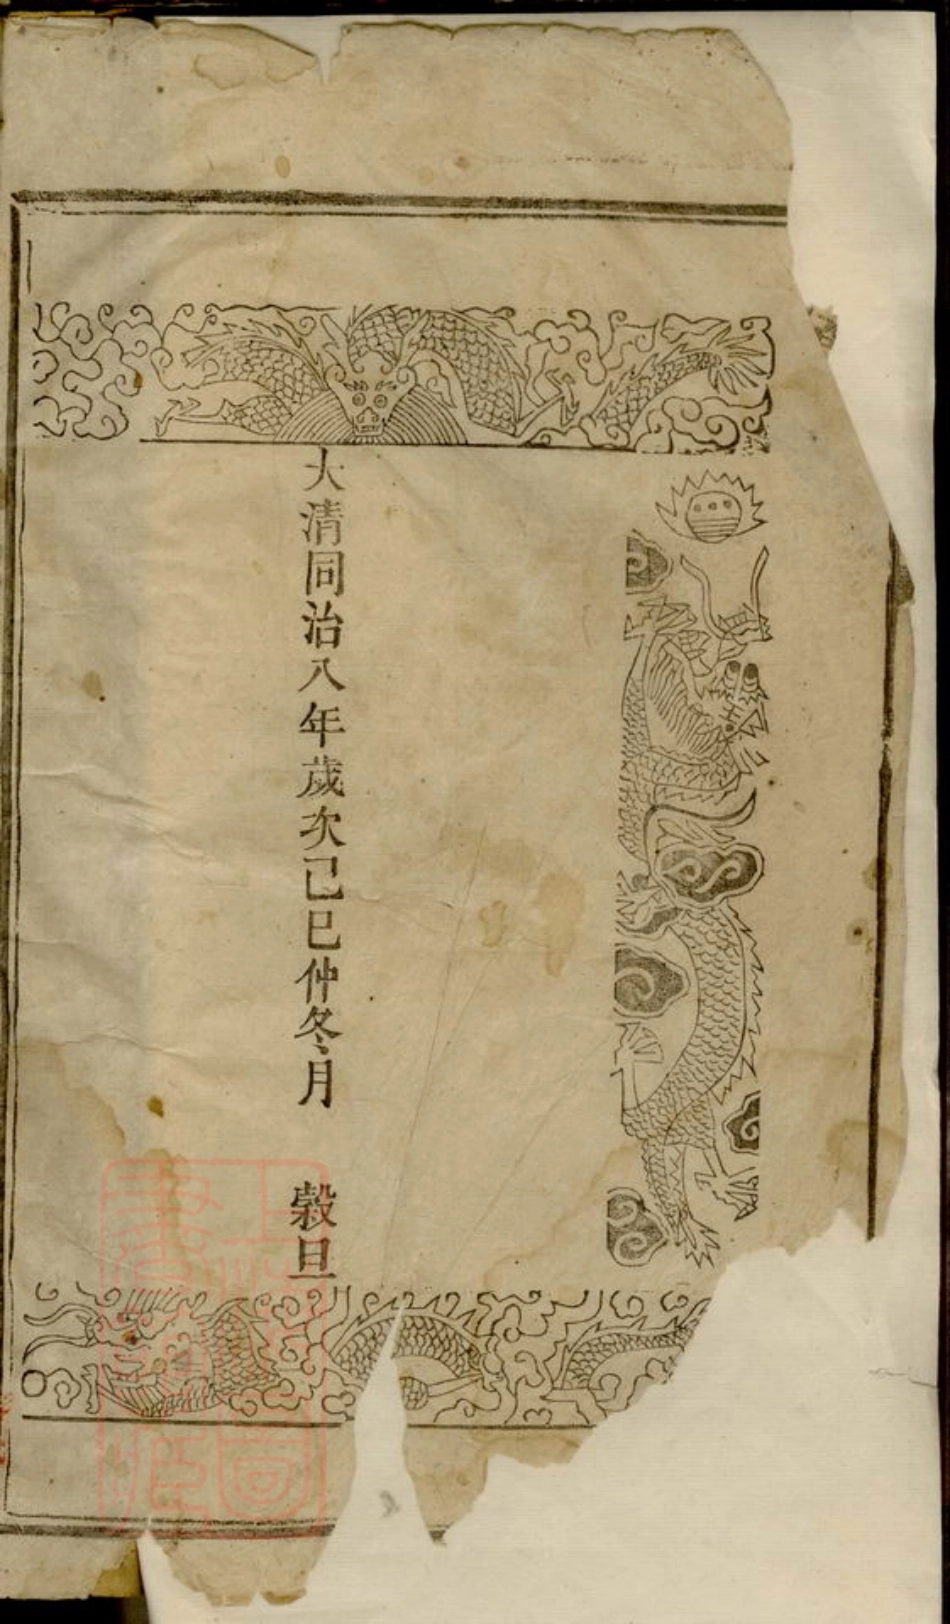 大清同治八年歲次己巳仲冬月 穀旦